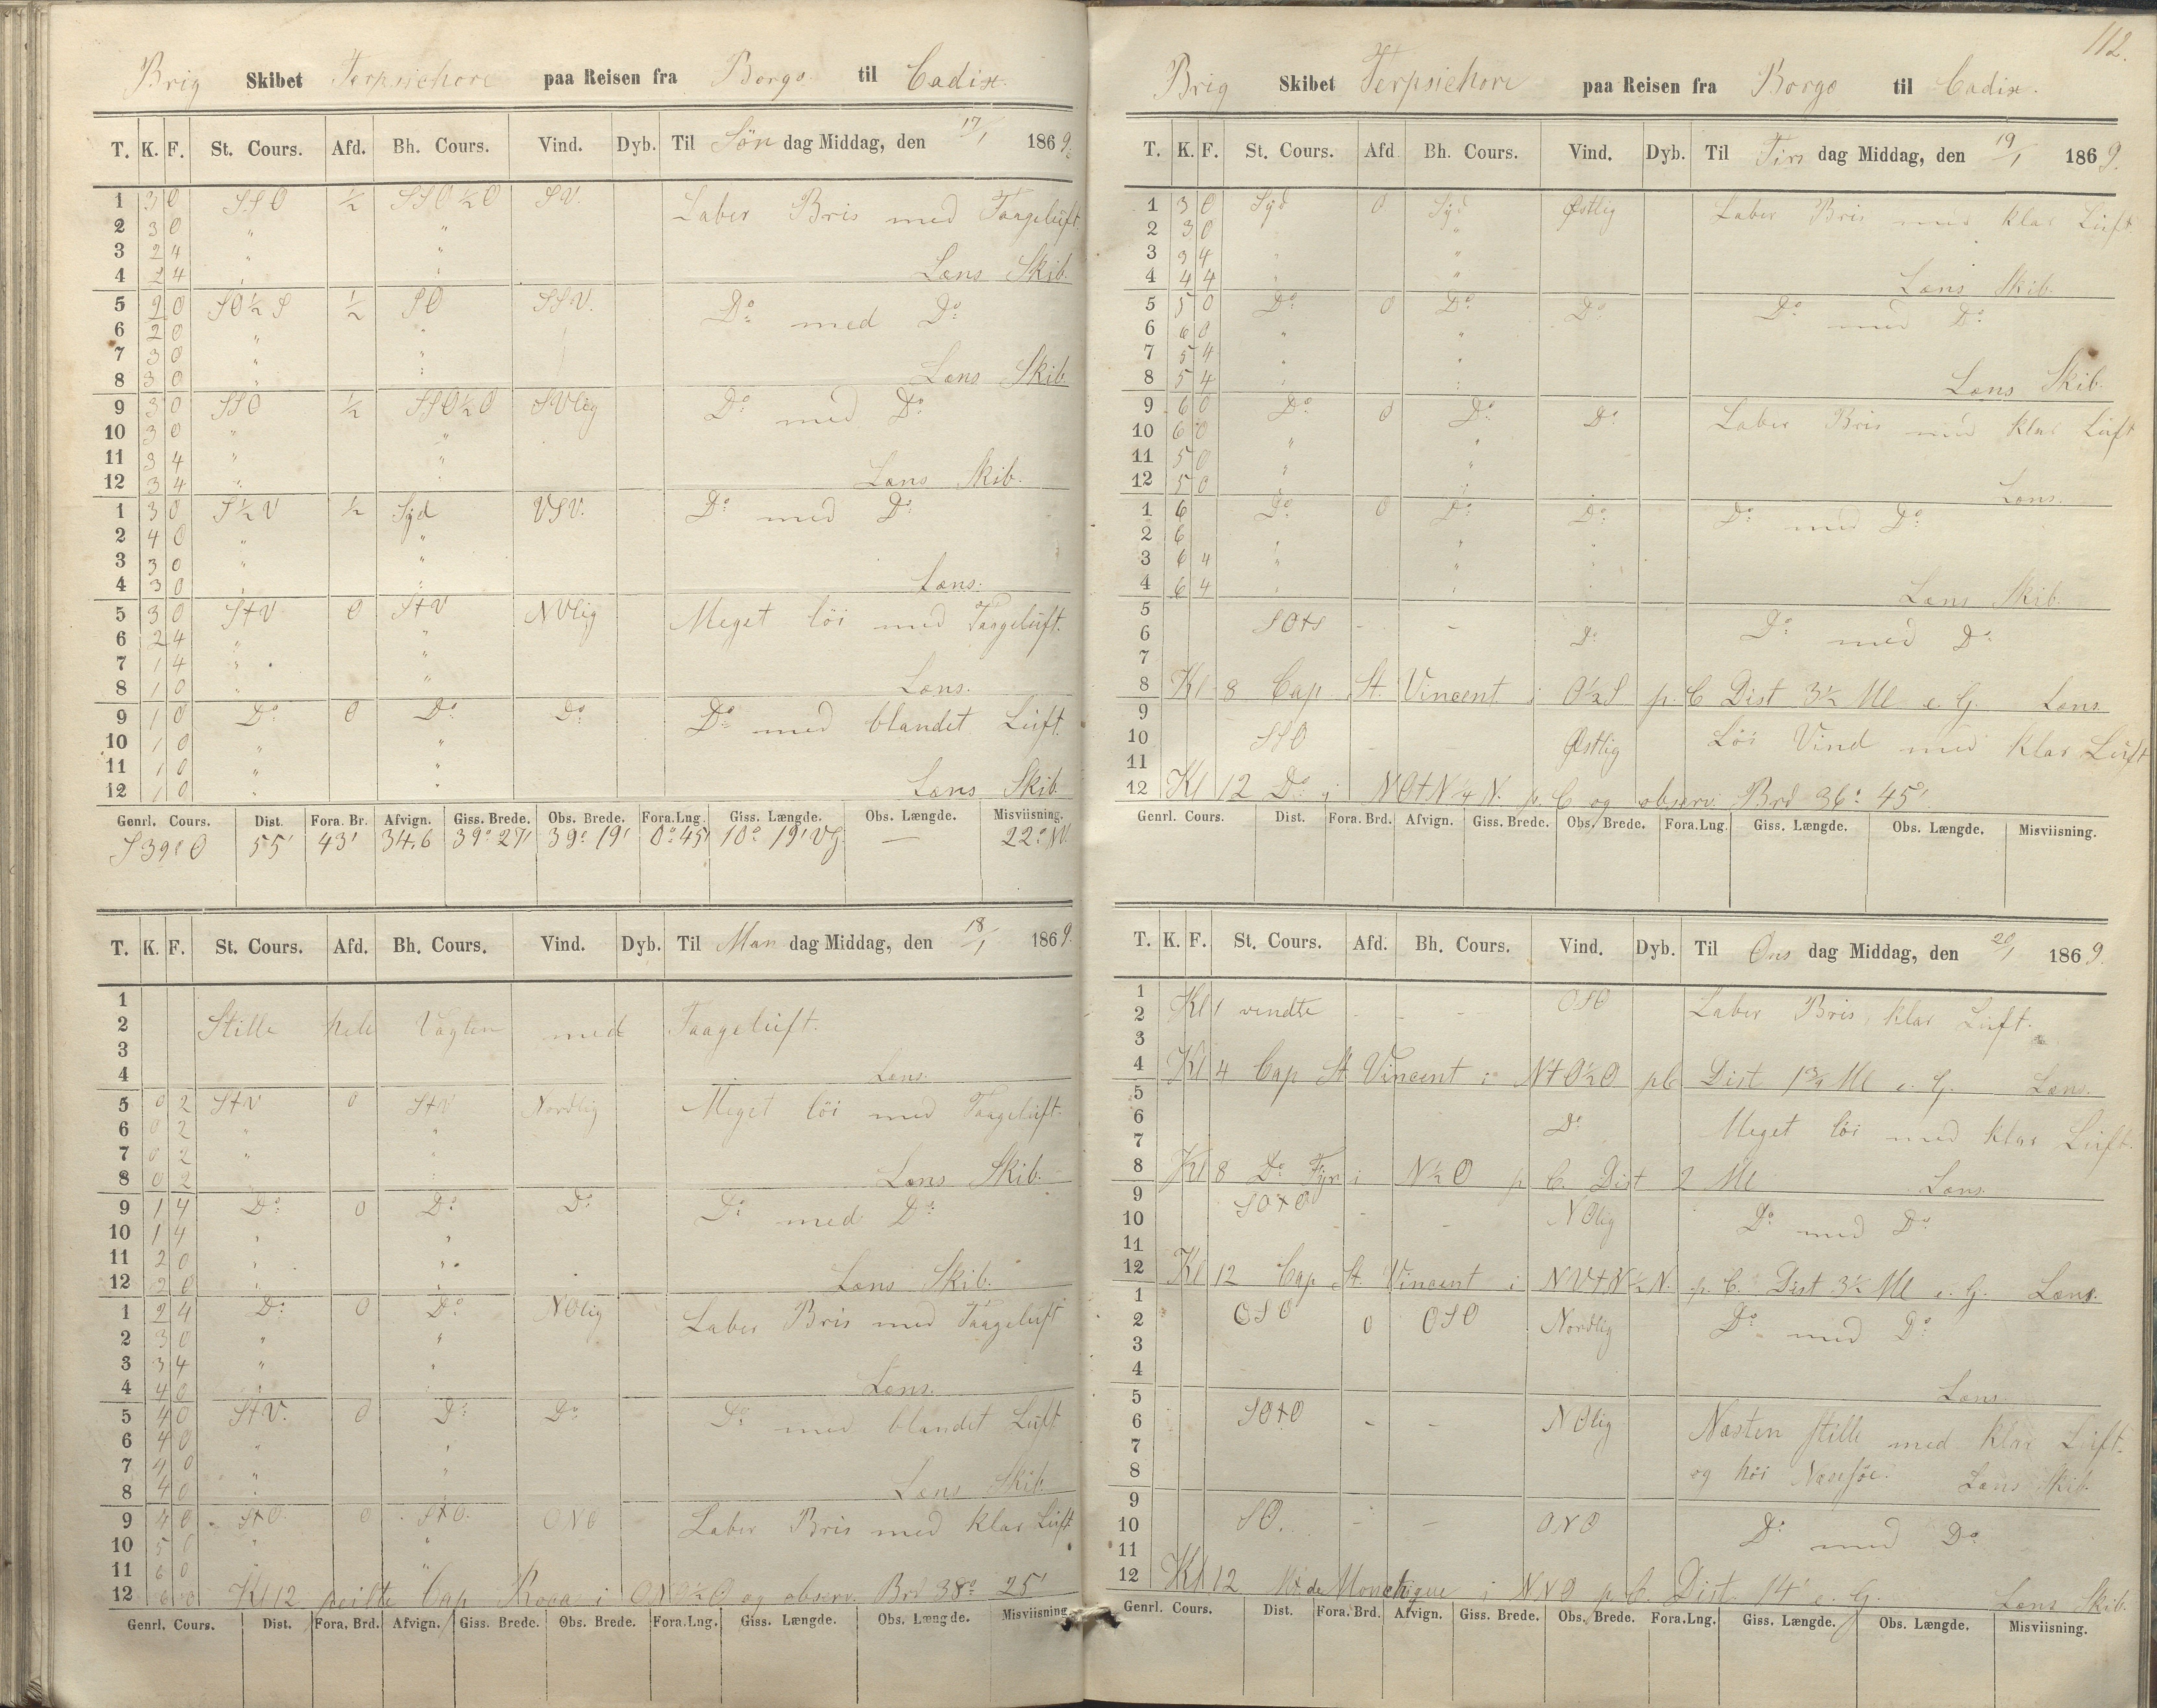 Brig Skibet Terpsichore paa Reisen fra Borgo til Cadix.
T. K. F. St. Cours. Afd. Bh. Cours. Vind. Dyb. Til Søn dag Middag, den 17/1 1869.
1 3 0 SSO ½ SSO½O SV. Laber Bris med Taageluft.
2 3 0 " "
3 2 4 " "
4 2 4 " " Læns Skib.
5 2 0 SO½S ½ SO SSV. Do med Do
6 2 0 " "
7 3 0 " "
8 3 0 " " Læns Skib.
9 3 0 SSO ½ SSO½O SVlig Do med Do
10 3 0 " "
11 3 4 " "
12 3 4 " " Læns Skib.
1 3 0 S½V ½ Syd VSV. Do med Do
2 4 0 " "
3 3 0 " "
4 3 0 " " Læns.
5 3 0 StV 0 StV NVlig Meget löi med Taageluft.
6 2 4 " "
7 1 4 " "
8 1 0 " " Læns.
9 1 0 Do 0 Do Do Do med blandet Luft.
10 1 0 " "
11 1 0 " "
12 1 0 " " Læns Skib.
Genrl. Cours. Dist. Fora. Br. Afvign. Giss. Brede. Obs. Brede. Fora.Lng. Giss. Længde. Obs. Længde. Misviisning.
S39°O 55' 43' 34,6 39° 27' 39° 19' 0° 45' 10° 19' Vg. — 22° NV.
T. K. F. St. Cours. Afd. Bh. Cours. Vind. Dyb. Til Man dag Middag, den 18/1 1869.
1
2 Stille hele Vagten med Taageluft.
3
4 Læns.
5 0 2 StV 0 StV Nordlig Meget löi med Taageluft.
6 0 2 " "
7 0 2 " "
8 0 2 " " Læns Skib.
9 1 4 Do 0 Do Do Do med Do
10 1 4 " "
11 2 0 " "
12 2 0 " " Læns Skib.
1 2 4 Do 0 Do NOlig Laber Bris med Taageluft
2 3 0 " "
3 3 4 " "
4 4 0 " " Læns.
5 4 0 StV. 0 Do Do Do med blandet Luft
6 4 0 " "
7 4 0 " "
8 4 0 " " Læns Skib.
9 4 0 StO. 0 StO. ONO Laber Bris med klar Luft
10 5 0 " "
11 6 0 " "
12 6 0 Kl 12 peilte Cap Roca i ONO½O og observ. Brd 38° 25'
Genrl. Cours. Dist. Fora. Brd. Afvign. Giss. Brede. Obs. Brede. Fora.Lng. Giss. Længde. Obs. Længde. Misviisning.
112.
Brig Skibet Terpsichore paa Reisen fra Borgo til Cadix.
T. K. F. St. Cours. Afd Bh. Cours. Vind. Dyb. Til Tirs dag Middag, den 19/1 1869.
1 3 0 Syd 0 Syd Østlig Laber Bris med klar Luft.
2 3 0 "
3 3 4 " "
4 4 4 " " Læns Skib.
5 5 0 Do 0 Do Do Do med Do
6 6 0 " "
7 5 4 " "
8 5 4 " " Læns Skib.
9 6 0 Do 0 Do Do Laber Bris med klar Luft
10 6 0 " "
11 5 0 " "
12 5 0 " " Læns.
1 6 Do 0 Do Do Do med Do
2 6 " "
3 6 4 " "
4 6 4 " " Læns Skib.
5
6 SOtS - - Do Do med Do
7
8 Kl 8 Cap St. Vincent i O½S p. C Dist 3½ Ml e. G. Læns
9
10 SSO - - Østlig Löi Vind med klar Luft
11
12 Kl 12 Do i NOtN¼N. p. C og observ. Brd 36° 45'
Genrl. Cours. Dist. Fora. Brd. Afvign. Giss. Brede. Obs. Brede. Fora.Lng. Giss. Længde. Obs. Længde. Misviisning.
T. K. F. St. Cours. Afd. Bh. Cours. Vind. Dyb. Til Ons dag Middag, den 20/1 1869.
1
2 Kl 1 vendte - - - OSO Laber Bris, klar Luft.
3
4 Kl 4 Cap St Vincent i NtO½O pC Dist 1¾ Ml e. G. Læns.
5
6 Do Meget löi med klar Luft.
7
8 Kl 8 Do Fyr i N½O p C. Dist 2 Ml Læns.
9 SOtO
10 - - NOlig Do med Do
11
12 Kl 12 Cap St. Vincent i NVtN½N. p. C. Dist 3½ Ml e. G. Læns.
1
2 OSO 0 OSO Nordlig Do med Do
3
4 Læns.
5
6 SOtO - - NOlig Næsten stille med klar Luft.
7
8 og höi Læns Skib.
9
10 SO. - - ONO Do med Do
11
12 Kl 12 de Monchique i NNO p C. Dist 14' e. G. Læns Skib.
Genrl. Cours. Dist. Fora. Brd. Afvign. Giss. Brede. Obs. Brede. Fora.Lng. Giss. Længde. Obs. Længde. Misviisning.